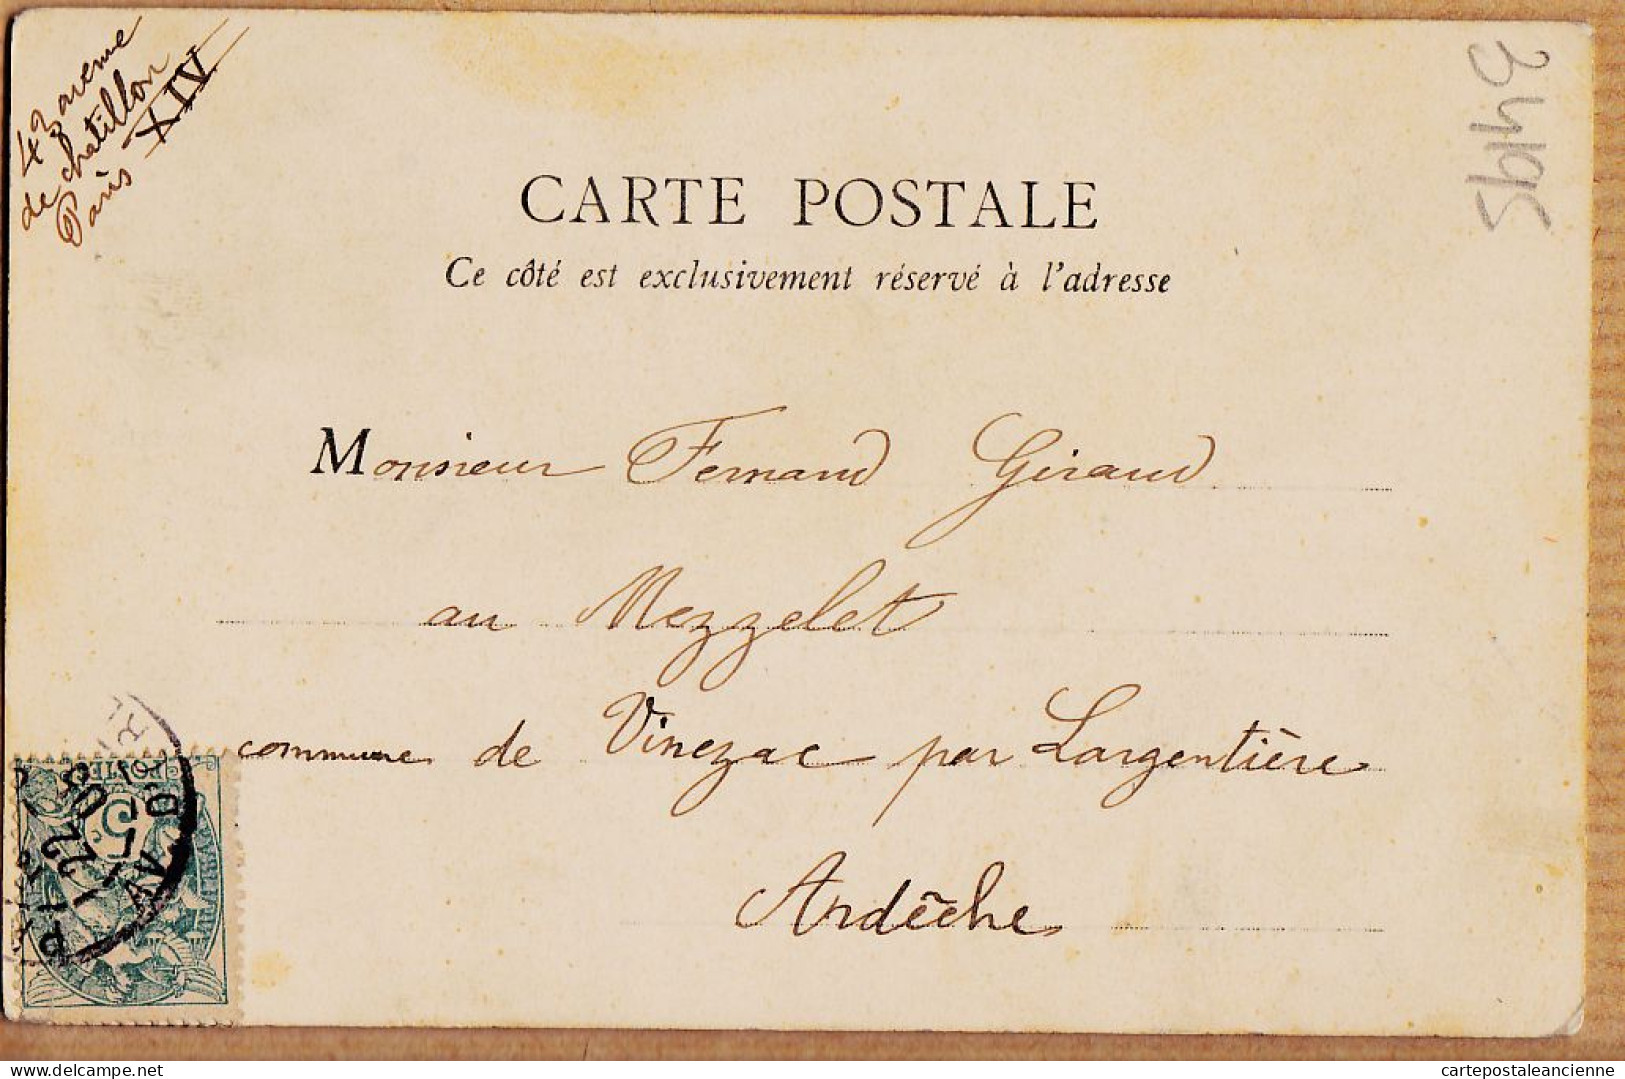 43 avenue
de chatillon
Paris XIV
CARTE POSTALE
Ce côté est exclusivement réservé à l'adresse
Monsieur Fernand Giraud
au Mezzelet
commune de Vinezac par Largentière
Ardèche
delcampe.net
cartepostaleancienne